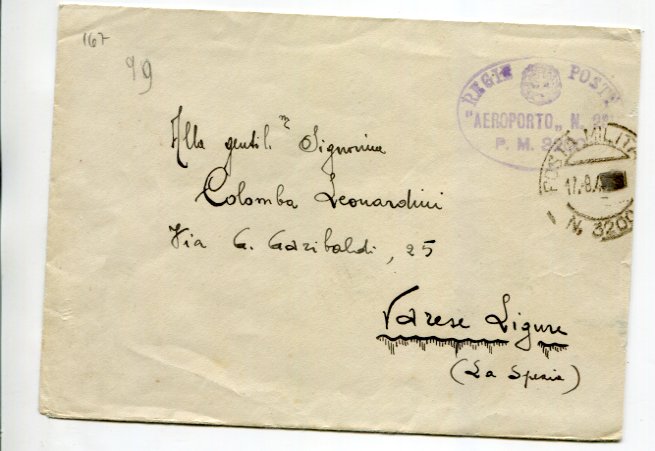 167
99
REGIE POSTE
"AEROPORTO„ N.
P. M. 3200
POSTA MILITA
17.8.4
N. 3200
Alla gentil.ᵐᵃ Signorina
Colomba Leonardini
Via G. Garibaldi, 25
Varese Ligure
(La Spezia)